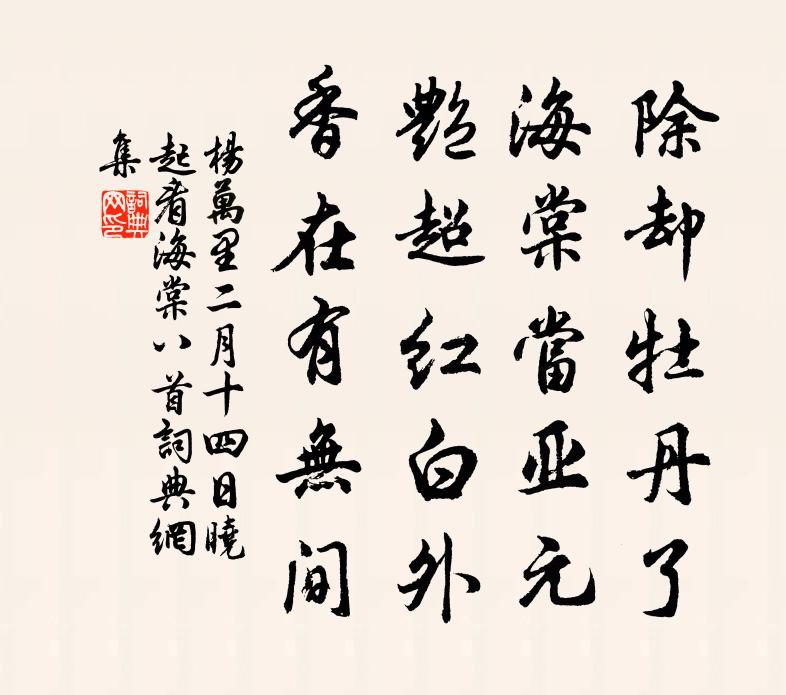 除却牡丹了
海棠當亚元
艷超红白外
香在有無间
楊萬里二月十四日曉
起看海棠八首詞典網
集
詞典
网印